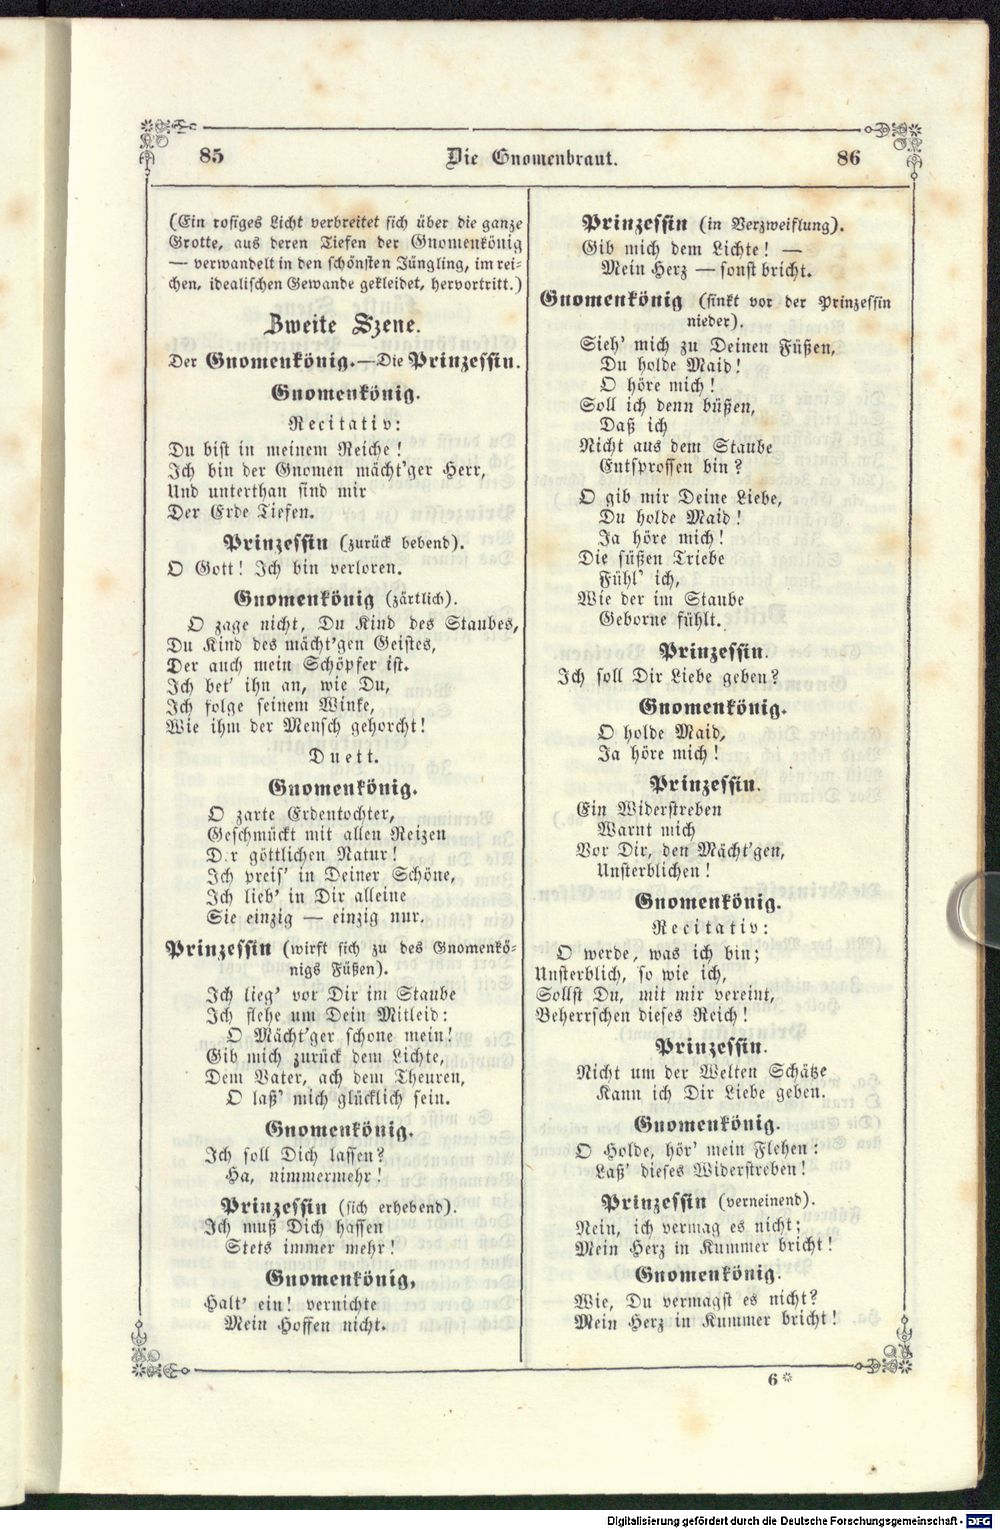 85
Die Gnomenbraut.
86
(Ein rosiges Licht verbreitet sich über die ganze
Grotte, aus deren Tiefen der Gnomenkönig
— verwandelt in den schönsten Jüngling, im rei-
chen, idealischen Gewande gekleidet, hervortritt.)
Zweite Szene.
Der Gnomenkönig.—Die Prinzessin.
Gnomenkönig.
Recitativ:
Du bist in meinem Reiche!
Ich bin der Gnomen mächt'ger Herr,
Und unterthan sind mir
Der Erde Tiefen.
Prinzessin (zurück bebend).
O Gott! Ich bin verloren.
Gnomenkönig (zärtlich).
O zage nicht, Du Kind des Staubes,
Du Kind des mächt'gen Geistes,
Der auch mein Schöpfer ist.
Ich bet' ihn an, wie Du,
Ich folge seinem Winke,
Wie ihm der Mensch gehorcht!
Duett.
Gnomenkönig.
O zarte Erdentochter,
Geschmückt mit allen Reizen
D.r göttlichen Natur!
Ich preis' in Deiner Schöne,
Ich lieb' in Dir alleine
Sie einzig — einzig nur.
Prinzessin (wirft sich zu des Gnomenkö-
nigs Füßen).
Ich lieg' vor Dir im Staube
Ich flehe um Dein Mitleid:
O Mächt'ger schone mein!
Gib mich zurück dem Lichte,
Dem Vater, ach dem Theuren,
O laß' mich glücklich sein.
Gnomenkönig.
Ich soll Dich lassen?
Ha, nimmermehr!
Prinzessin (sich erhebend).
Ich muß Dich hassen
Stets immer mehr!
Gnomenkönig,
Halt' ein! vernichte
Mein Hoffen nicht.
Prinzessin (in Verzweiflung).
Gib mich dem Lichte! —
Mein Herz — sonst bricht.
Gnomenkönig (sinkt vor der Prinzessin
nieder).
Sieh' mich zu Deinen Füßen,
Du holde Maid!
O höre mich!
Soll ich denn büßen,
Daß ich
Nicht aus dem Staube
Entsprossen bin?
O gib mir Deine Liebe,
Du holde Maid!
Ja höre mich!
Die süßen Triebe
Fühl' ich,
Wie der im Staube
Geborne fühlt.
Prinzessin.
Ich soll Dir Liebe geben?
Gnomenkönig.
O holde Maid,
Ja höre mich!
Prinzessin.
Ein Widerstreben
Warnt mich
Vor Dir, den Mächt'gen,
Unsterblichen!
Gnomenkönig.
Recitativ:
O werde, was ich bin;
Unsterblich, so wie ich,
Sollst Du, mit mir vereint,
Beherrschen dieses Reich!
Prinzessin.
Nicht um der Welten Schätze
Kann ich Dir Liebe geben.
Gnomenkönig.
O Holde, hör' mein Flehen:
Laß' dieses Widerstreben!
Prinzessin (verneinend).
Nein, ich vermag es nicht;
Mein Herz in Kummer bricht!
Gnomenkönig.
Wie, Du vermagst es nicht?
Mein Herz in Kummer bricht!
6*
Digitalisierung gefördert durch die Deutsche Forschungsgemeinschaft - DFG